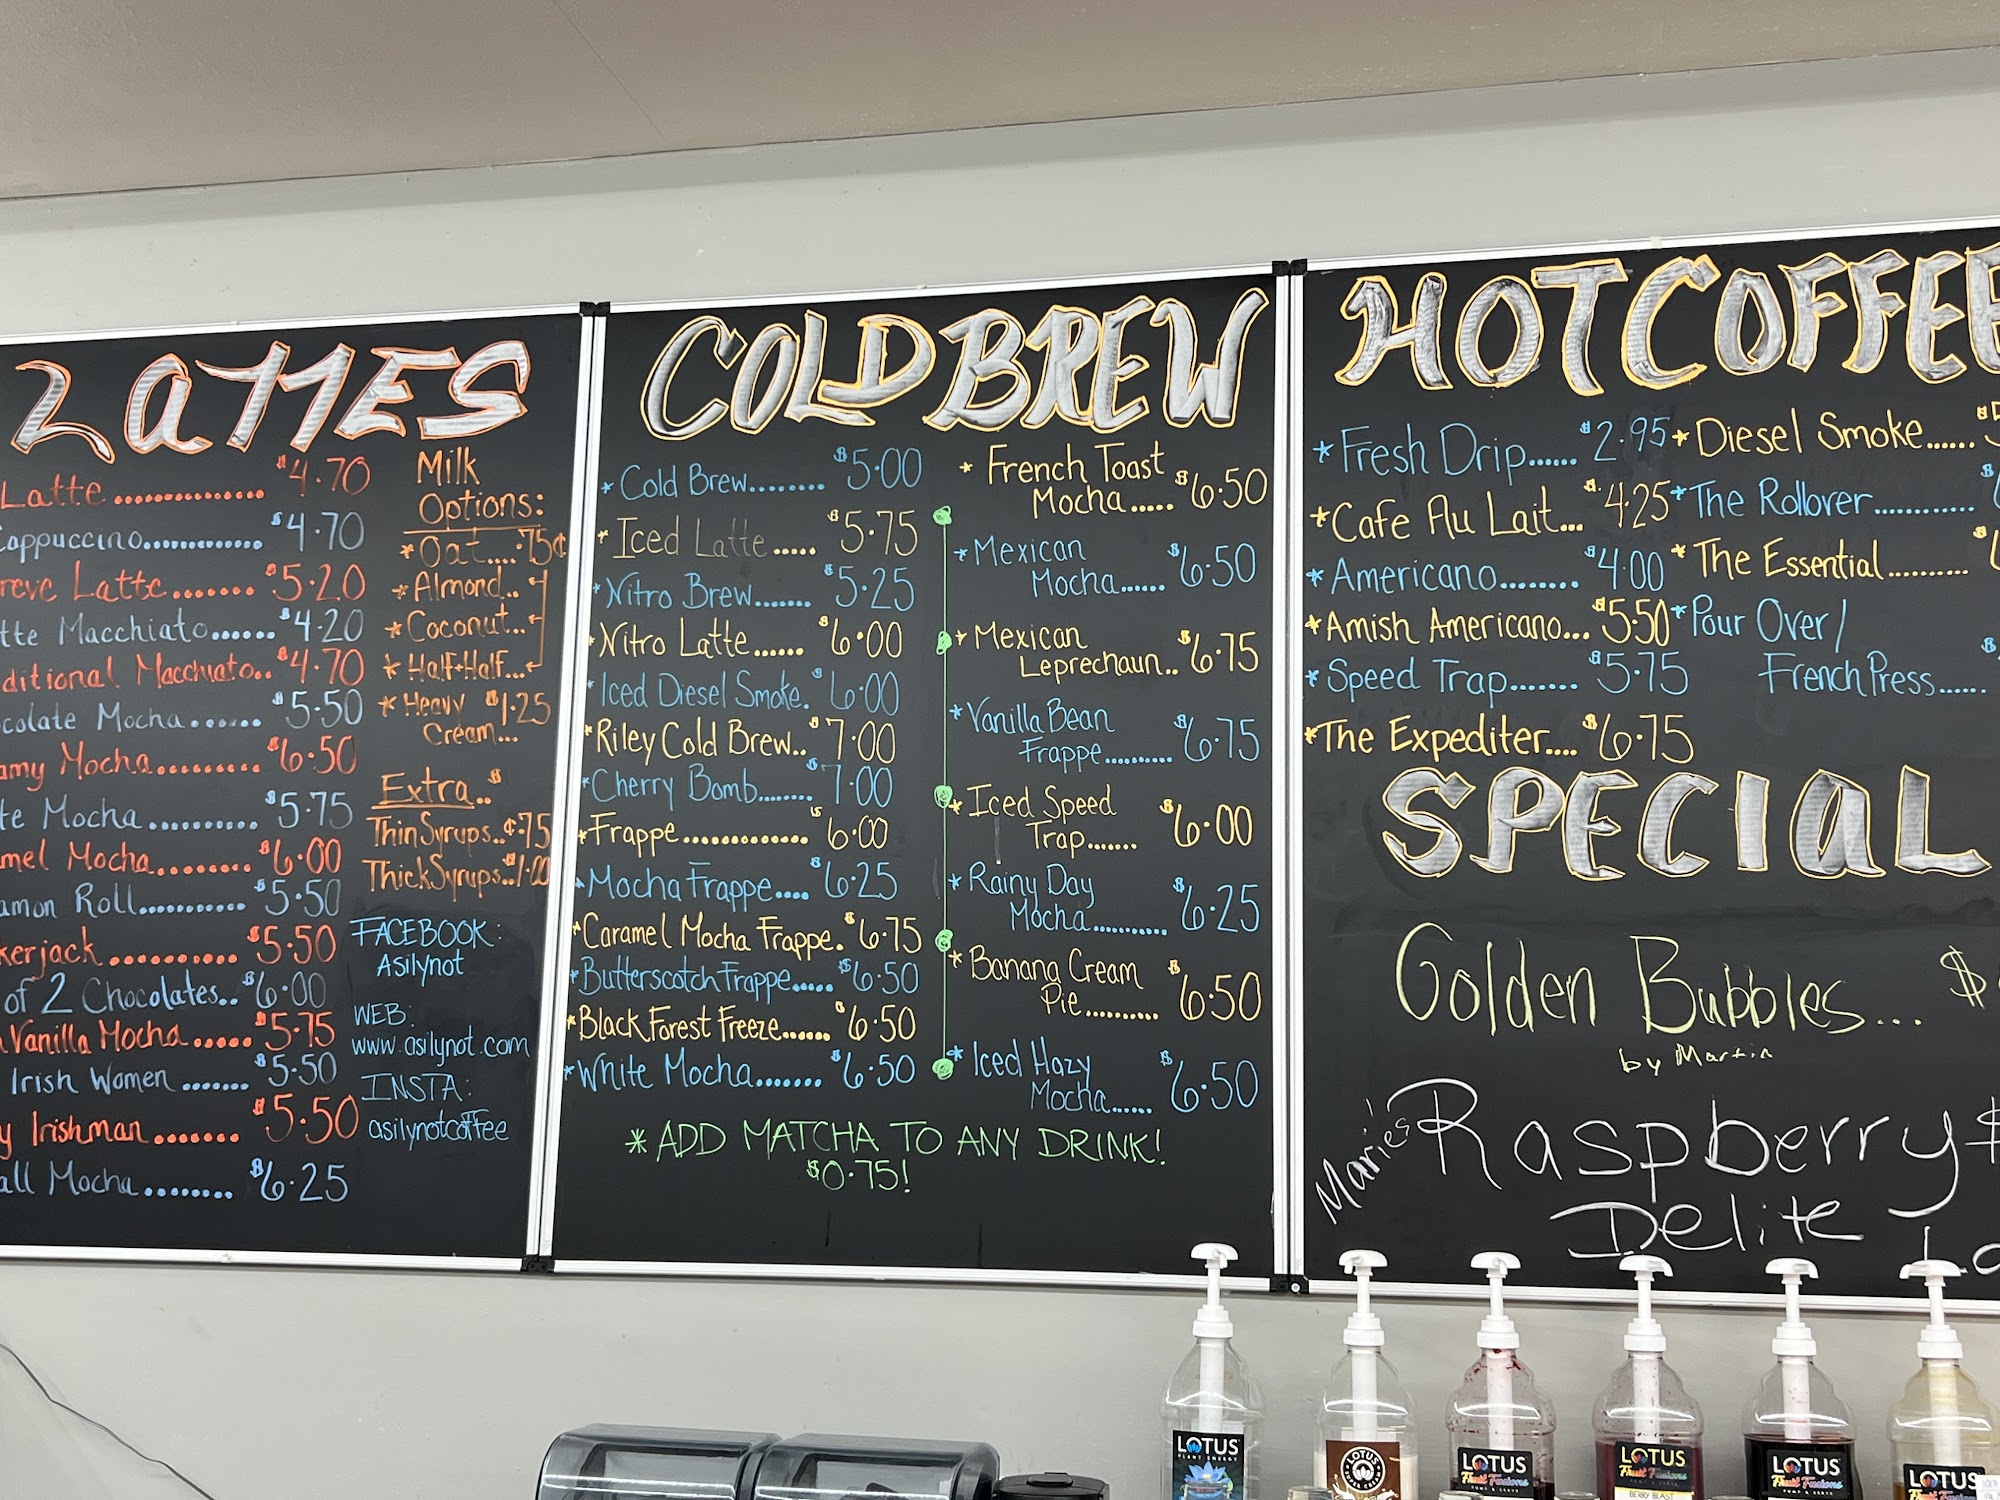 LATTES
Latte.............. $4.70
Cappuccino............ $4.70
Breve Latte....... $5.20
Latte Macchiato...... $4.20
Traditional Macchiato.. $4.70
Chocolate Mocha...... $5.50
Mocha.......... $6.50
Mocha.......... $5.75
Mocha........ $6.00
Roll........... $5.50
$5.50
of 2 Chocolates.. $6.00
Vanilla Mocha..... $5.75
Irish Women....... $5.50
Irishman....... $5.50
Mocha........ $6.25
Milk
Options:
*Oat.....75¢
*Almond..
*Coconut...
*Half+Half...
*Heavy $1.25
Cream...
Extra..$
Thin Syrups..¢.75
Thick Syrups..$1.00
FACEBOOK:
Asilynot
WEB:
www.asilynot.com
INSTA:
asilynotcoffee
COLD BREW
*Cold Brew........ $5.00
*Iced Latte..... $5.75
*Nitro Brew....... $5.25
*Nitro Latte...... $6.00
*Iced Diesel Smoke. $6.00
*Riley Cold Brew.. $7.00
*Cherry Bomb....... $7.00
*Frappe............. $6.00
*Mocha Frappe.... $6.25
*Caramel Mocha Frappe. $6.75
*Butterscotch Frappe..... $6.50
*Black Forest Freeze...... $6.50
*White Mocha....... $6.50
*French Toast
Mocha..... $6.50
*Mexican
Mocha...... $6.50
*Mexican
Leprechaun.. $6.75
*Vanilla Bean
Frappe.......... $6.75
*Iced Speed
Trap....... $6.00
*Rainy Day
Mocha........... $6.25
*Banana Cream
Pie........... $6.50
*Iced Hazy
Mocha...... $6.50
*ADD MATCHA TO ANY DRINK!
$0.75!
HOT COFFEE
*Fresh Drip...... $2.95
*Cafe Au Lait... $4.25
*Americano........ $4.00
*Amish Americano... $5.50
*Speed Trap....... $5.75
*The Expediter.... $6.75
*Diesel Smoke...... $
*The Rollover............ $
*The Essential..........
*Pour Over/
French Press...... $
SPECIAL
Golden Bubbles... $
by Martin
Marie's Raspberry $
Delite
LOTUS
PLANT ENERGY
LOTUS
LOTUS
Fruit Fusions
PUMP & SERVE
LOTUS
Fruit Fusions
PUMP & SERVE
BERRY BLAST
LOTUS
Fruit Fusions
PUMP & SERVE
LOTUS
Fruit Fusions